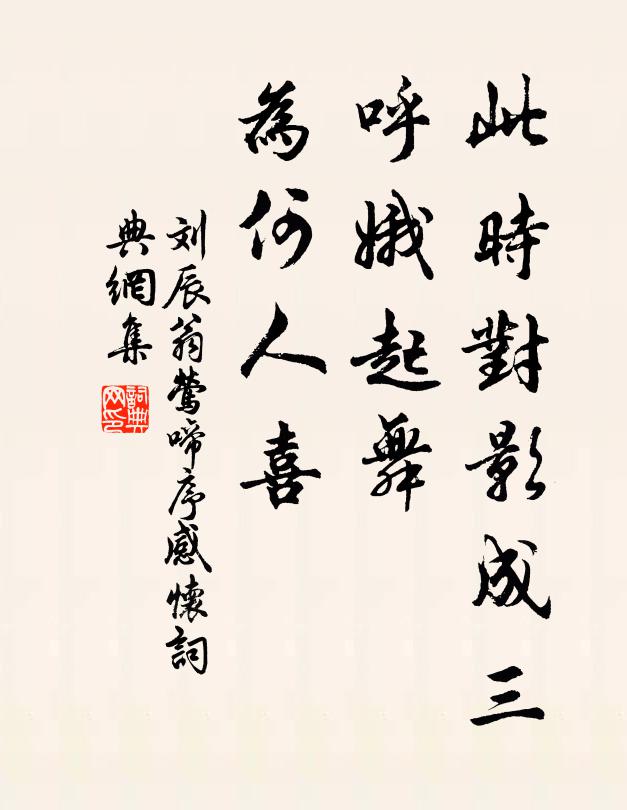 此時對影成三
呼娥起舞
為何人喜
刘辰翁鶯啼序感懷詞
典網集
詞典网印